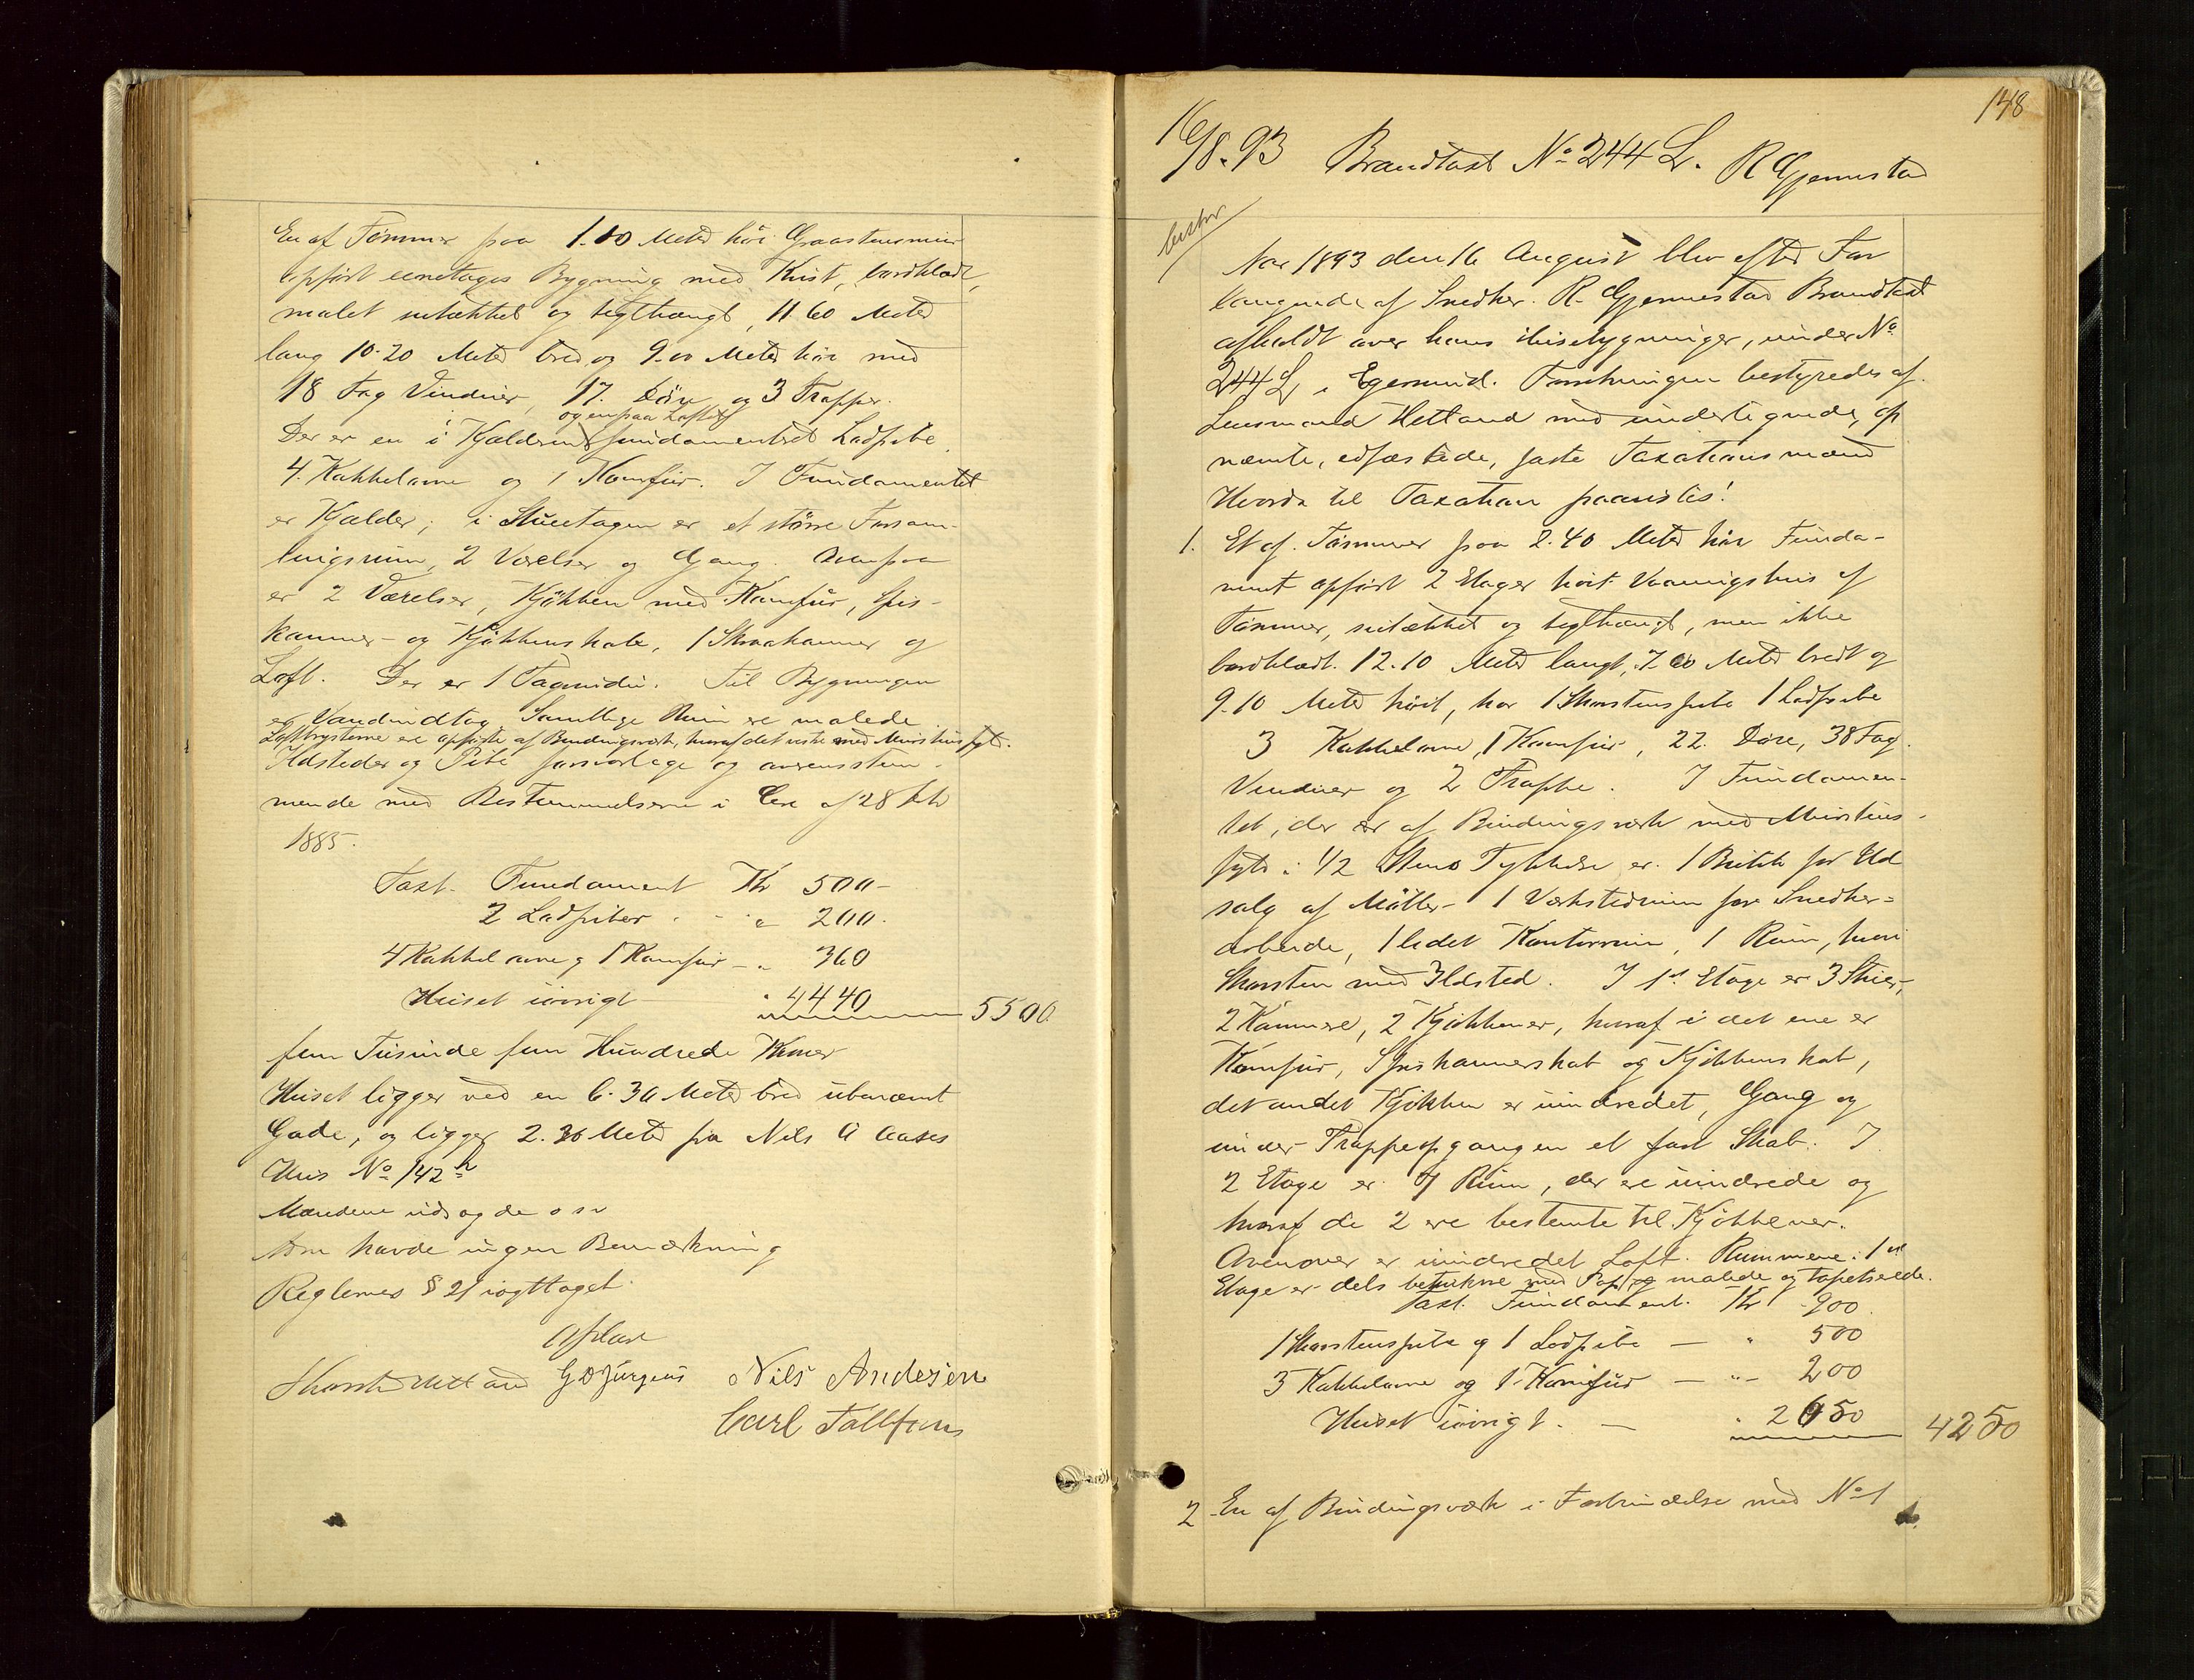 En af Tømmer paa 1.10 Meter høi Graastensmuur
opført eenetages Bygning med Kvist, bordklædt,
malet sutækket og teglhængt, 11.60 Meter
lang 10.20 Meter bred og 9.00 Meter høi med
18 Fag Vinduer, 17. Døre og 3 Trapper.
og en paa Loftet
Der er en i Kjælderen fundamenteret Ladpibe
4. Kakkelovne og 1 Komfur. I Fundamentet
er Kjælder; i Stueetagen er et større Forsam-
lingsrum, 2 Værelser og Gang. Ovenpaa
er 2 Værelser, Kjøkken med Komfur, Spis-
kammer- og Kjøkkenskabe, 1 Skraakammer og
Loft. Der er 1 Tagvindu. Til Bygningen
er Vandindtag. Samtlige Rum ere malede
Loftbrysterne ere opførte af Bindingsværk, hvoraf det vestre med Murstensfyld.
Ildsteder og Pibe forsvarlige og overensstem-
mende med Bestemmelserne i Lov af 28 Feb
1885.
Taxt. Fundament Kr 500-
2 Ladpiber " 200.
4 Kakkelovne og 1 Komfur - " 360
Huset iøvrigt " 4440 5500
fem Tusinde fem Hundrede Kroner
Huset ligger ved en 6.30 Meter bred ubenævnt
Gade, og ligger 2.30 Meter fra Nils A Aases
Hus No 142 h
Mændene udsagde o s v
som havde ingen Bemærkning
Reglemes § 21 iagttaget.
Afsluttet
Hetland G O Jürgens Nils Andersen
Carl Tollefsen
148
16/8.93 Brandtaxt No 244 L. R Gjermestad
Aar 1893 den 16 August blev efter For
langende af Snedker R. Gjermestad Brandtaxt
afholdt over hans Husebygninger, under No
244 L i Egersund. Forretningen bestyredes af
Lensmand Hetland med undertegnede, op
nævnte, edfæstede, faste Taxationsmænd
Hvorda til Taxation paavistes:
1. Et af Tømmer paa 2.40 Meter høi Funda-
ment opført 2 Etager høit Vaaningshus af
Tømmer, sutækket og teglhængt, men ikke
bordklædt. 12.10 Meter langt, 7.00 Meter bredt og
9.10 Meter høit, har 1 Skorstenspibe 1 Ladpibe
3 Kakkelovne, 1 Komfur, 22. Døre, 38 Fag
Vinduer og 2 Trappe. I Fundamen-
tet, der er af Bindingsværk med Murstens-
fyld i 1/2 Stens Tykkelse er 1 Butik for Ud
salg af Møbler- 1 Værkstedrum for Snedker-
arbeide, 1 lidet Kontorrum, 1 Rum, hvori
Skorsten med Ildsted. I 1st Etage er 3 Stuer,
2 Kammere, 2 Kjøkkener, hvoraf i det ene er
Komfur, Spiskammerskab og Kjøkkenskab,
det andet Kjøkken er uindredet, Gang og
under Trappeopgangen et fast Skab. I
2 Etage er 7 Rum, der ere uindrede og
hvoraf de 2 ere bestemte til Kjøkkener.
Ovenover er uindredet Loft. Rummene i 1st
Etage er dels betrukne med Pap og malede og tapetserede.
Taxt. Fundament. Kr 900.
1 Skorstenspibe og 1 Ladpibe — " 500
3 Kakkelovne og 1 Komfur — " 200
Huset iøvrigt. — " 2650 4250
2 En af Bindingsværk i Forbindelse med No 1